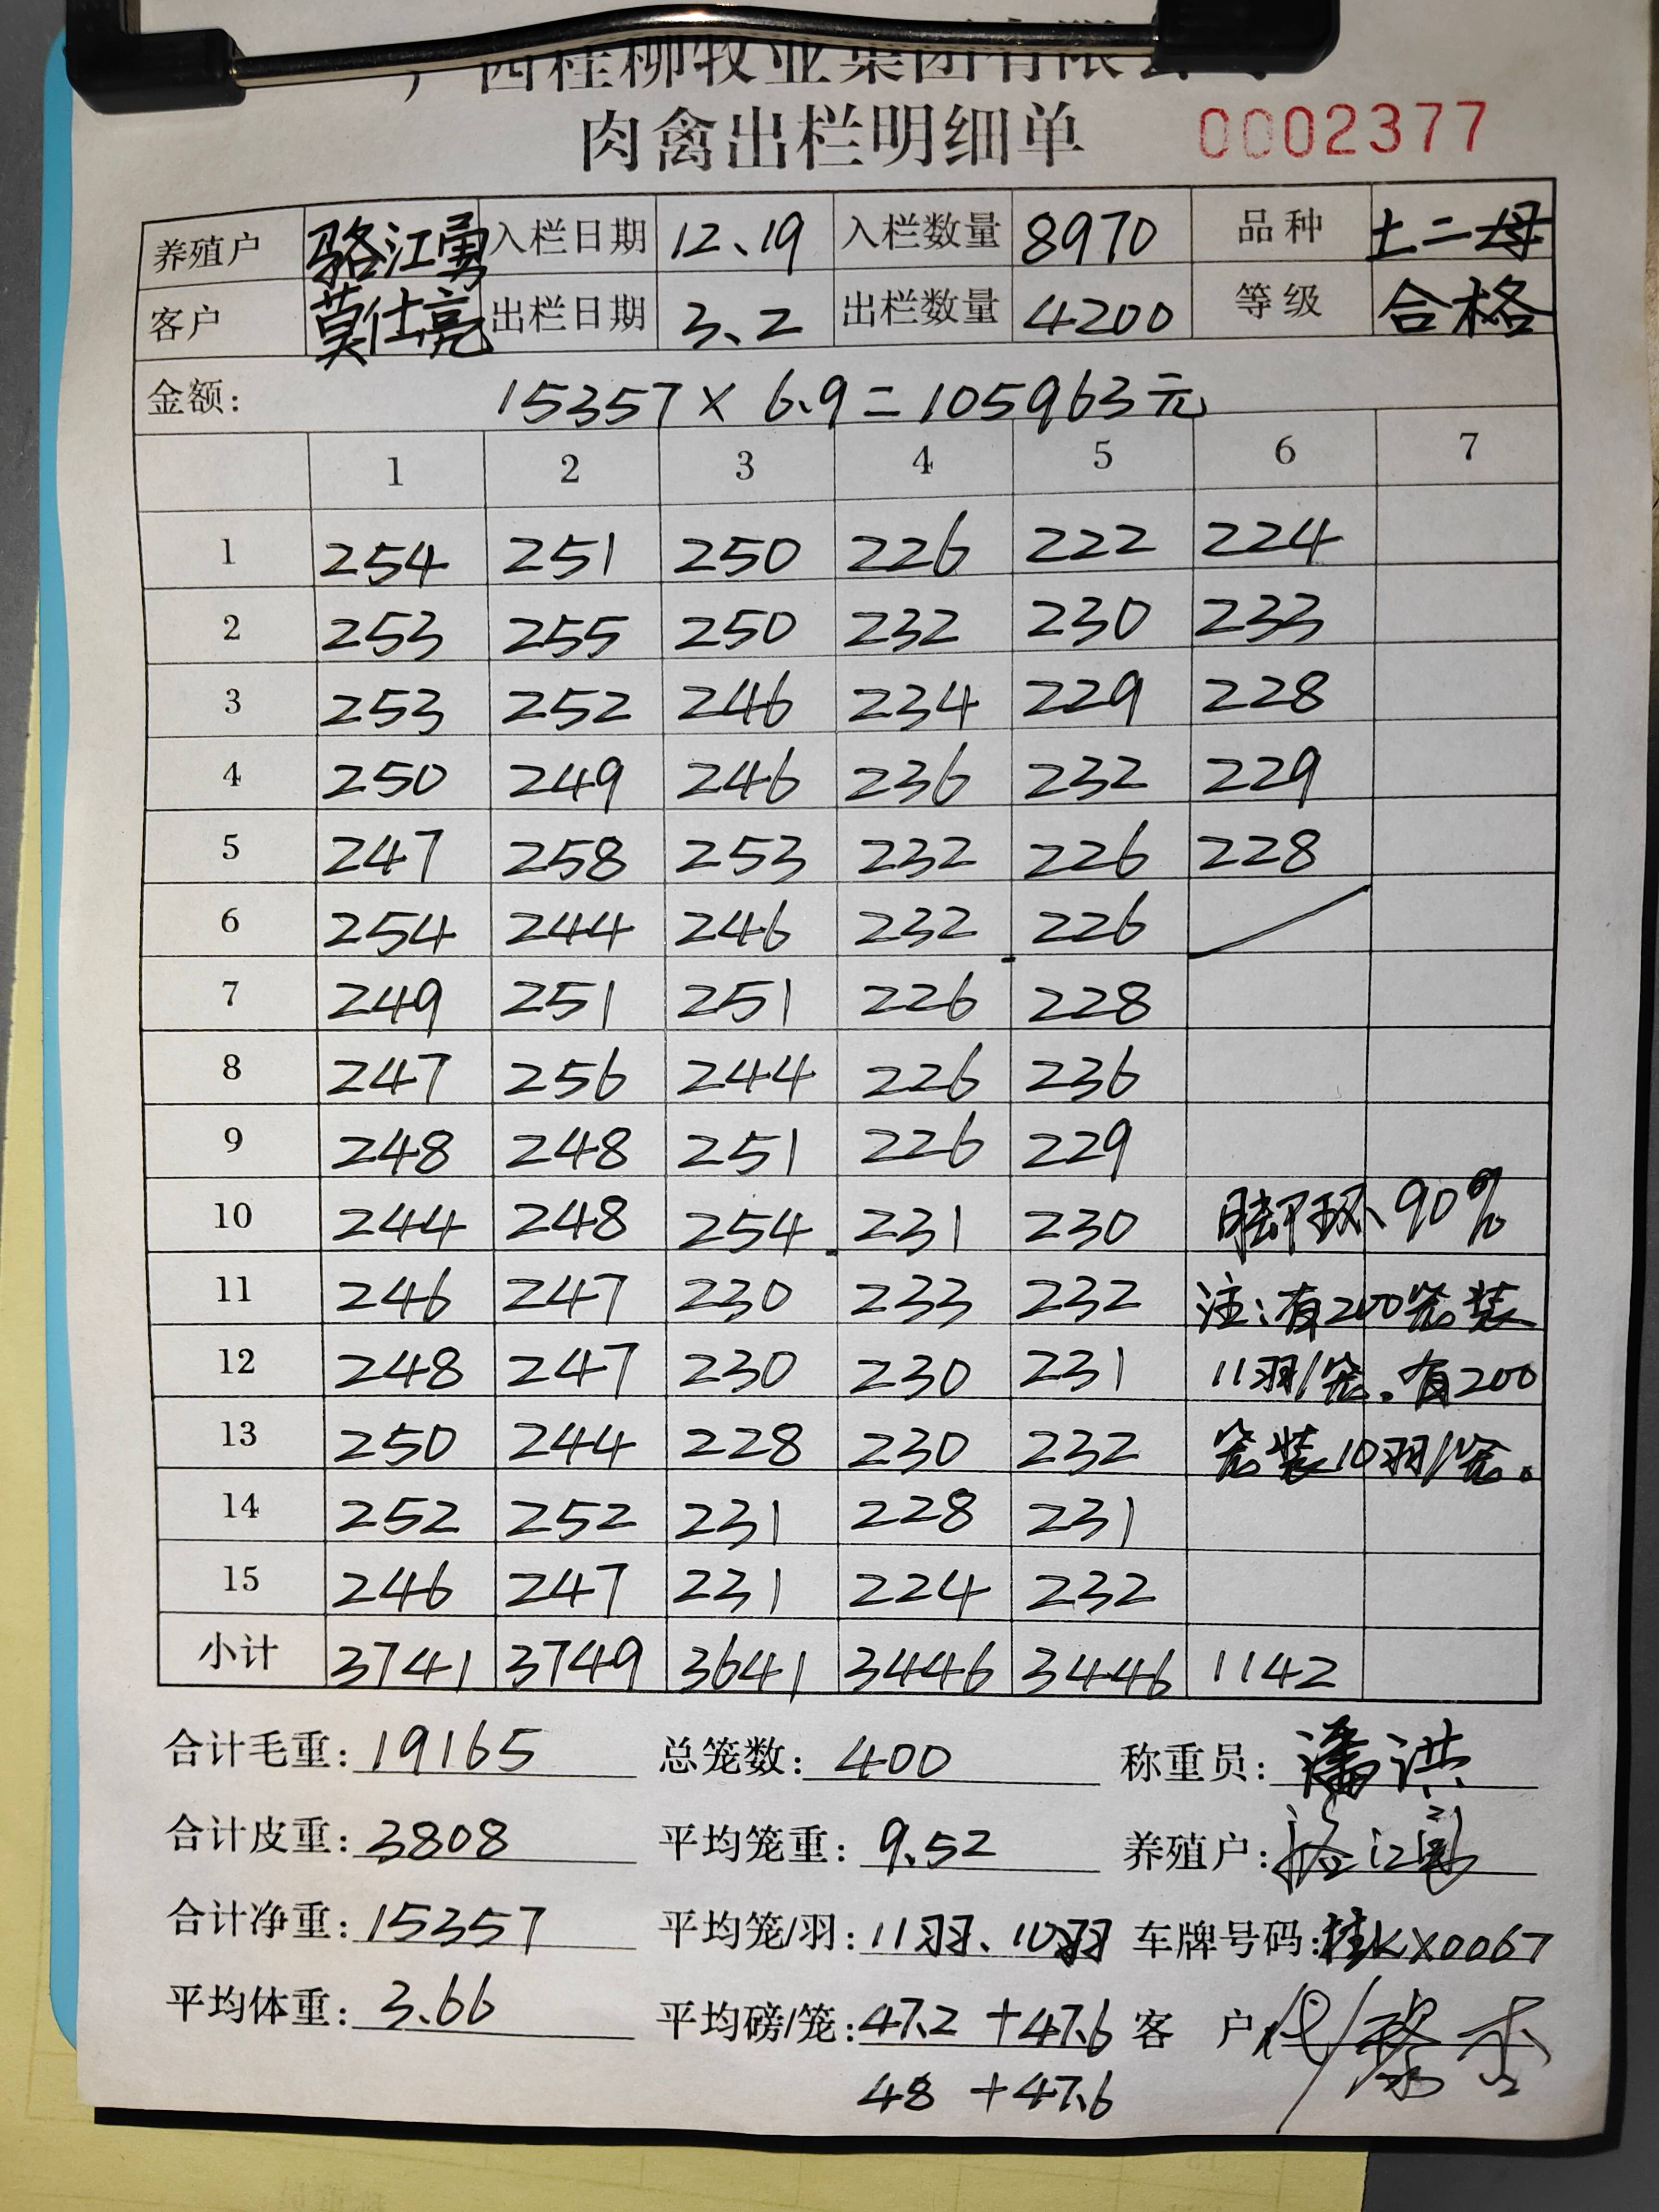 广西桂柳牧业集团有限公司
肉禽出栏明细单 0002377
养殖户 骆江勇 入栏日期 12、19 入栏数量 8970 品种 土二母
客户 莫仕亮 出栏日期 3、2 出栏数量 4200 等级 合格
金额: 15357×6.9=105963元
1 2 3 4 5 6 7
1 254 251 250 226 222 224
2 253 255 250 232 230 233
3 253 252 246 234 229 228
4 250 249 246 236 232 229
5 247 258 253 232 226 228
6 254 244 246 232 226
7 249 251 251 226 228
8 247 256 244 226 236
9 248 248 251 226 229
10 244 248 254 231 230 脚环90%
11 246 247 230 233 232 注:有200笼装
12 248 247 230 230 231 11羽/笼.有200
13 250 244 228 230 232 笼装10羽/笼。
14 252 252 231 228 231
15 246 247 231 224 232
小计 3741 3749 3641 3446 3446 1142
合计毛重:19165 总笼数:400 称重员:潘洪
合计皮重:3808 平均笼重:9.52 养殖户:
合计净重:15357 平均笼/羽:11羽、10羽 车牌号码:桂KX0067
平均体重:3.66 平均磅/笼:47.2+47.6 客户
48+47.6